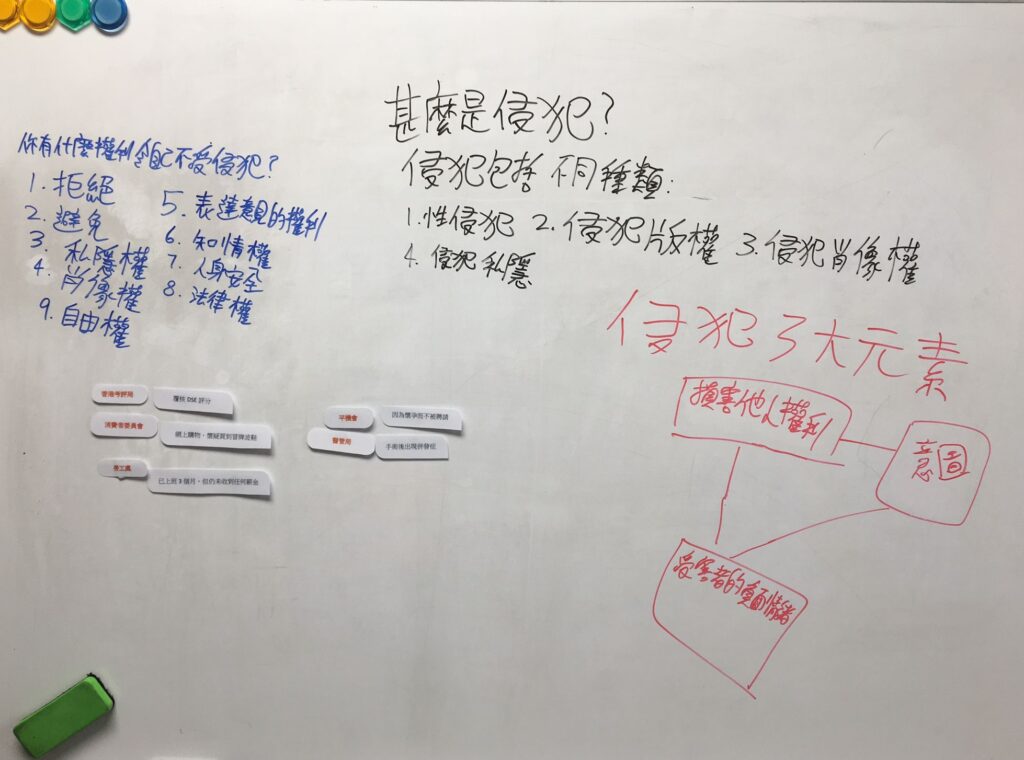 甚麼是侵犯?
侵犯包括不同種類:
1.性侵犯 2.侵犯版權 3.侵犯肖像權
4.侵犯私隱
你有什麼權利令自己不受侵犯?
1.拒絕
2.避免
3.私隱權
4.肖像權
9.自由權
5.表達意見的權利
6.知情權
7.人身安全
8.法律權
侵犯3大元素
損害他人權利
意圖
受害者的負面情緒
香港考評局
覆核 DSE 評分
消費者委員會
網上購物,懷疑買到冒牌波鞋
勞工處
已上班3個月,但仍未收到任何薪金
平機會
因為懷孕而不被聘請
醫管局
手術後出現併發症